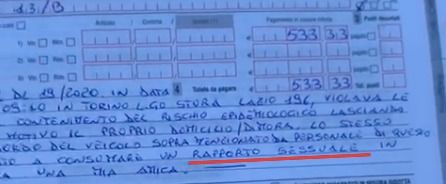 13/B
Articolo / Comma
Pagamento in misura ridotta
Punti decurtati
1) Vis Rim € 533 33
2) Vis Rim €
3) Vis Rim €
4 Totale da pagare € 533 33 Tot. punti
DL 19/2020. IN DATA
09:40 IN TORINO L.GO STURA LAZIO 196, VIOLAVA LE
CONTENIMENTO DEL RISCHIO EPIDEMIOLOGICO LASCIANDO
MOTIVO IL PROPRIO DOMICILIO/DIMORA. LO STESSO
BORDO DEL VEICOLO SOPRA MENZIONATO DA PERSONALE DI QUESO
A CONSUMARE UN RAPPORTO SESSUALE IN
UNA MIA AMICA.